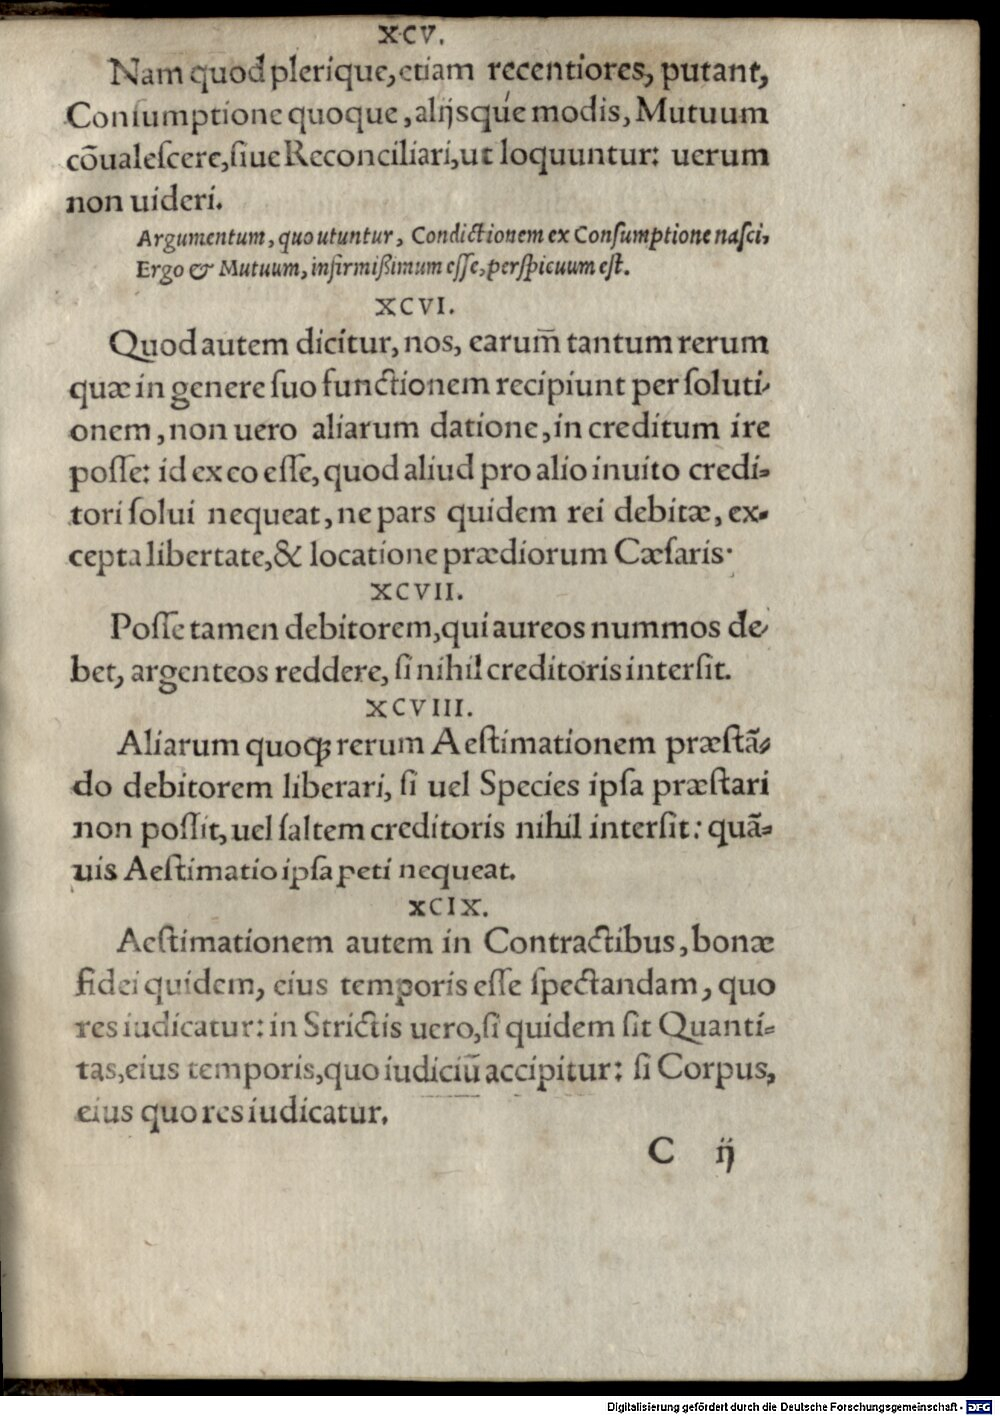 XCV.
Nam quod plerique, etiam recentiores, putant,
Conſumptione quoque, alijsque modis, Mutuum
cōualeſcere, ſiue Reconciliari, ut loquuntur: uerum
non uideri.
Argumentum, quo utuntur, Condictionem ex Conſumptione naſci,
Ergo & Mutuum, infirmißimum eſſe, perſpicuum eſt.
XCVI.
Quod autem dicitur, nos, earum̄ tantum rerum
quæ in genere ſuo functionem recipiunt per ſoluti-
onem, non uero aliarum datione, in creditum ire
poſſe: id ex eo eſſe, quod aliud pro alio inuito credi-
tori ſolui nequeat, ne pars quidem rei debitæ, ex-
cepta libertate, & locatione prædiorum Cæſaris.
XCVII.
Poſſe tamen debitorem, qui aureos nummos de-
bet, argenteos reddere, ſi nihil creditoris interſit.
XCVIII.
Aliarum quoqꝫ rerum Aeſtimationem præſtā-
do debitorem liberari, ſi uel Species ipſa præſtari
non poſſit, uel ſaltem creditoris nihil interſit: quā-
uis Aeſtimatio ipſa peti nequeat.
XCIX.
Aeſtimationem autem in Contractibus, bonæ
fidei quidem, eius temporis eſſe ſpectandam, quo
res iudicatur: in Strictis uero, ſi quidem ſit Quanti-
tas, eius temporis, quo iudiciū accipitur: ſi Corpus,
eius quo res iudicatur.
C ij
Digitalisierung gefördert durch die Deutsche Forschungsgemeinschaft - DFG